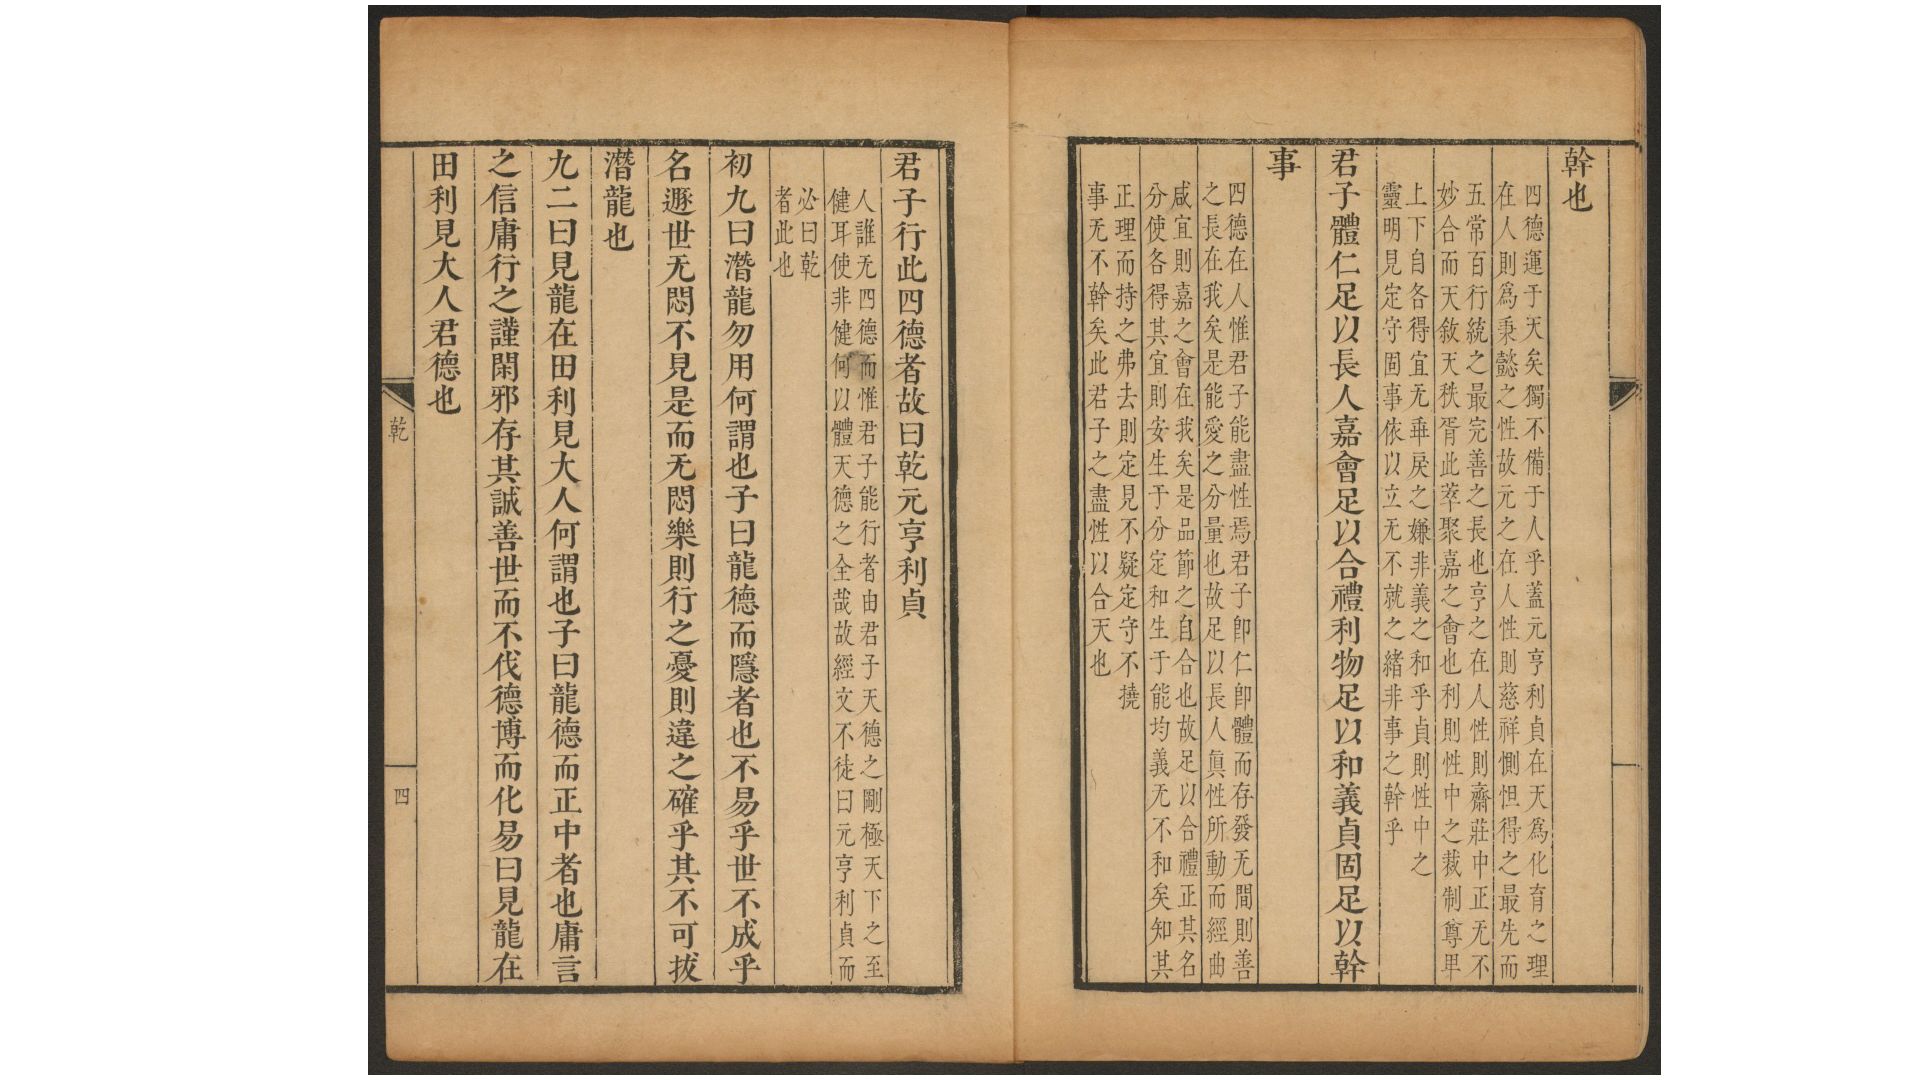 幹也
四德運于天矣獨不備于人乎蓋元亨利貞在天爲化育之理
在人則爲秉懿之性故元之在人性則慈祥惻怛得之最先而
五常百行統之最完善之長也亨之在人性則齋莊中正无不
妙合而天敘天秩胥此萃聚嘉之會也利則性中之裁制尊卑
上下自各得宜无乖戾之嫌非義之和乎貞則性中之
靈明見定守固事依以立无不就之緒非事之幹乎
君子體仁足以長人嘉會足以合禮利物足以和義貞固足以幹
事
四德在人惟君子能盡性焉君子卽仁卽體而存發无間則善
之長在我矣是能愛之分量也故足以長人眞性所動而經曲
咸宜則嘉之會在我矣是品節之自合也故足以合禮正其名
分使各得其宜則安生于分定和生于能均義无不和矣知其
正理而持之弗去則定見不疑定守不撓
事无不幹矣此君子之盡性以合天也
君子行此四德者故曰乾元亨利貞
人誰无四德而惟君子能行者由君子天德之剛極天下之至
健耳使非健何以體天德之全哉故經文不徒曰元亨利貞而
必曰乾
者此也
初九曰潛龍勿用何謂也子曰龍德而隱者也不易乎世不成乎
名遯世无悶不見是而无悶樂則行之憂則違之確乎其不可拔
潛龍也
九二曰見龍在田利見大人何謂也子曰龍德而正中者也庸言
之信庸行之謹閑邪存其誠善世而不伐德博而化易曰見龍在
田利見大人君德也
乾
四